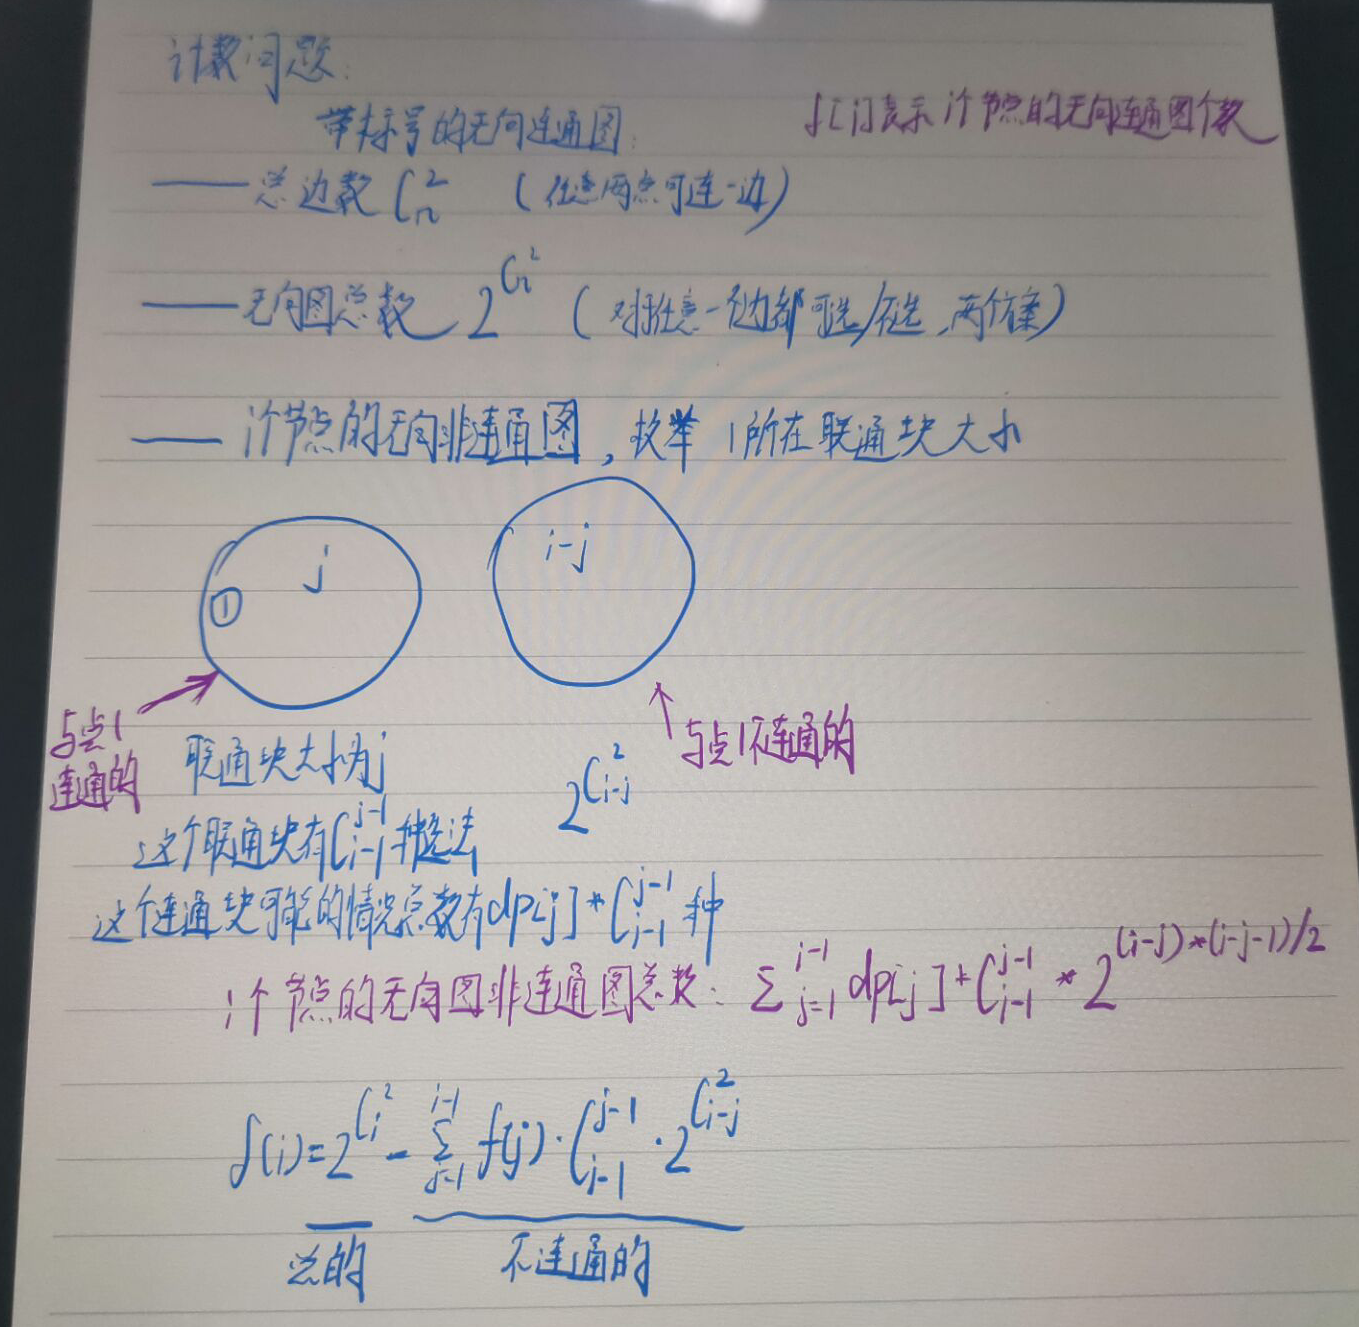 计数问题:
带标号的无向连通图:
f[i]表示i个节点的无向连通图个数
—— 总边数 C_n^2 (任意两点可连一边)
—— 无向图总数 2^{C_n^2} (对于任意一个边都可选/不选,两个方案)
—— i个节点的无向非连通图,枚举 1所在联通块大小
j
i-j
①
与点1
连通的
与点1不连通的
联通块大小为j
2^{C_{i-j}^2}
这个联通块有C_{i-1}^{j-1}种选法
这个连通块可能的情况总数有dp[j]*C_{i-1}^{j-1}种
i个节点的无向图非连通图总数: Σ_{j=1}^{i-1} dp[j]*C_{i-1}^{j-1}*2^{(i-j)*(i-j-1)/2}
f(i)=2^{C_i^2}-Σ_{j=1}^{i-1} f(j)·C_{i-1}^{j-1}·2^{C_{i-j}^2}
总的
不连通的